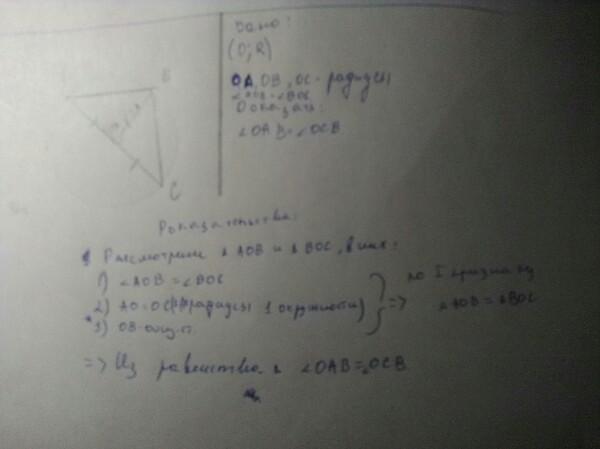 Дано:
(O; R)
OA, OB, OC - радиусы
∠AOB = ∠BOC
Доказать:
∠OAB = ∠OCB
B
C
Доказательство:
Рассмотрим ΔAOB и ΔBOC, в них:
1) ∠AOB = ∠BOC
2) AO = OC (радиусы 1 окружности)
3) OB-общ.
=> по I признаку
ΔAOB = ΔBOC
=> Из равенства Δ ∠OAB = ∠OCB